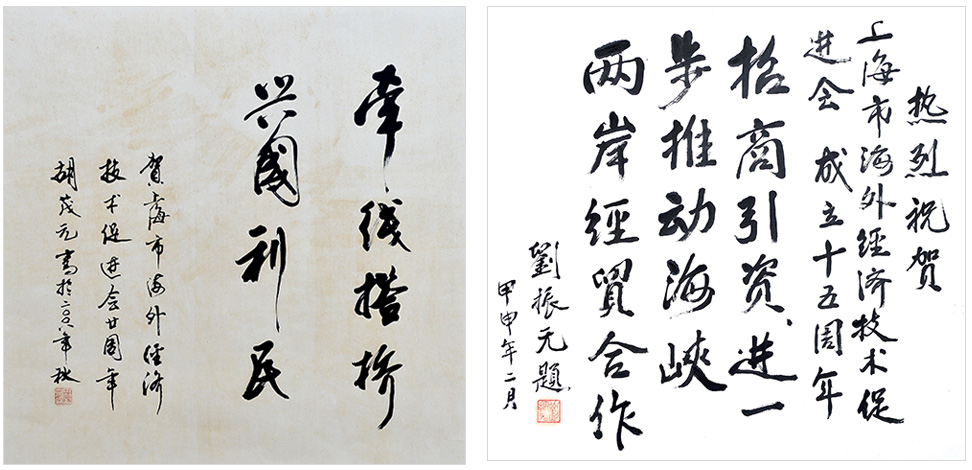 牵线搭桥
兴国利民
贺上海市海外经济
技术促进会廿周年
胡茂元書於二〇〇八年秋
热烈祝贺
上海市海外經济技术促
进会成立十五周年
招商引资、进一
步推动海峽
两岸經貿合作
劉振元題
甲申年二月